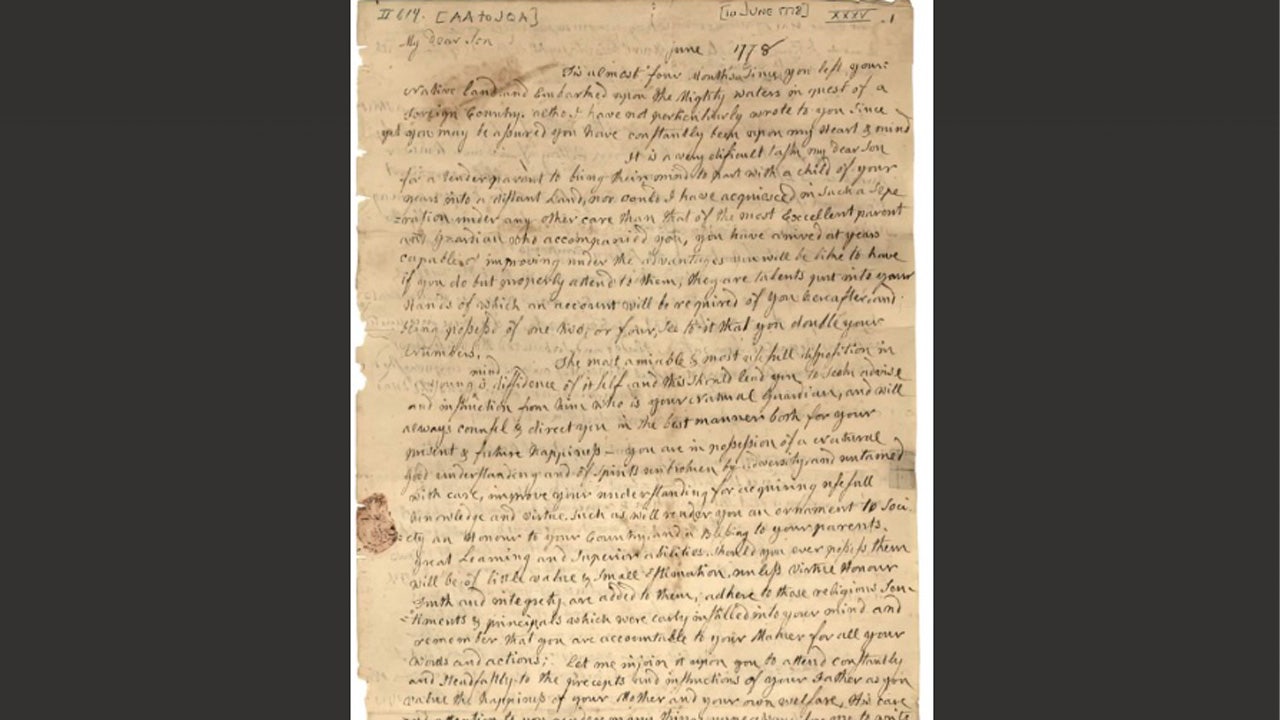 II 614. [AA to JQA] [10 JUNE 1778] XXXV .1
My dear Son
june 1778
Tis almost four Months since you left your
Native land and Embarked upon the Mighty waters in quest of a
Foreign Country. altho I have not perticuliarly wrote to you Since
yet you may be assured you have constantly been upon my Heart & mind
It is a very dificult task my dear Son
for a tender parent to bring their mind to part with a child of your
years into a distant Land, nor could I have acquiesced in Such a Sepe
=ration under any other care than that of the most Excellent parent
and Guardian who accompanied you, you have arrived at years
capable of improving under the advantages you will be like to have
if you do but properly attend to them, they are talents put into your
Hands of which an account will be required of you hereafter, and
being possess'd of one two, or four, See to it that you double your
Numbers.
The most amiable & most usefull disposition in
a young mind is diffidence of itself and this should lead you to seek advise
and instruction from him who is your Natural Guardian, and will
always counsel & direct you in the best manner both for your
present & future happiness — you are in possession of a Natural
good understanding and of spirits unbroken by adversity, and untamed
with care, improve your understanding for acquiring usefull
knowledge and virtue. Such as will render you an ornament to Soci
=ety an Honour to your Country, and a Blessing to your parents.
Great Learning and Superior abilities, should you ever possess them
will be of little value & Small Estimation, unless Virtue Honour
Truth and integrety are added to them, adhere to those religious Sen=
=timents & principals which were early instilled into your mind and
remember that you are accountable to your Maker for all your
words and actions; Let me injoin it upon you to attend constantly
and steadfastly to the precepts and instructions of your Father as you
value the happiness of your Mother and your own welfare, His care
and attention to you render many things unnecessary for me to write